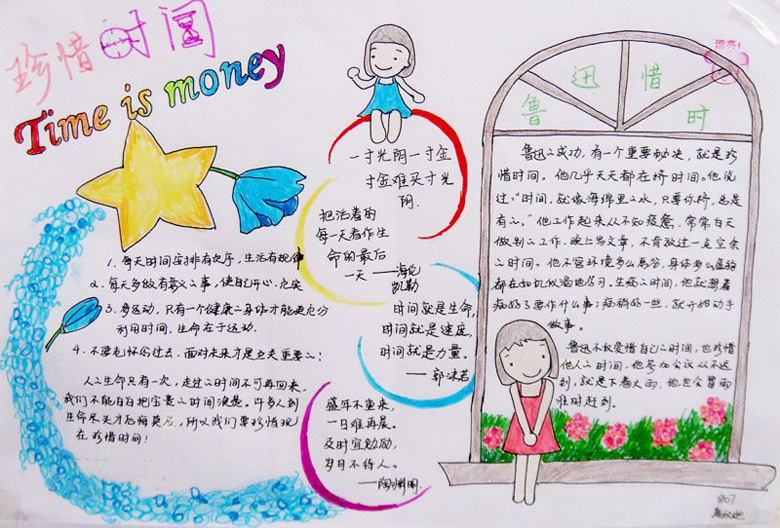 珍惜时间
Time is money
1. 每天时间安排有次序，生活有规律
2. 每天多做有意义之事，使自己开心、充实
3. 多运动，只有一个健康之身体才能更充分
利用时间，生命在于运动.
4. 不要老怀俗过去，面对未来才是至关重要之！
人之生命只有一次，走过之时间不可再回来.
我们不能白白把宝贵之时间浪费。许多人到
生命尽头才后悔莫及，所以我们要珍惜现
在珍惜时间！
一寸光阴一寸金
寸金难买寸光
阴.
把活着的
每一天看作生
命的最后
一天 ——海伦
凯勒
时间就是生命，
时间就是速度，
时间就是力量。
——郭沫若
盛年不重来，
一日难再晨。
及时宜勉励，
岁月不待人。
——陶渊明.
漂亮！
鲁迅惜时
鲁迅之成功，有一个重要秘决，就是珍
惜时间。他几乎天天都在挤时间。他说
过：“时间，就像海绵里之水，只要你挤，总是
有之。”他工作起来从不知疲惫，常常白天
做别之工作，晚上写文章，不肯放过一定空余
之时间。他不管环境多么恶劣，身体多么虚弱
都在如饥似渴地学习。生病之时间，他就想着
病好了要作什么事；病稍好一些，就开始动手
做事。
鲁迅不仅爱惜自己之时间，也珍惜
他人之时间，他参加会议从不迟
到，就是下着大雨，他也会冒雨
准时赶到.
807